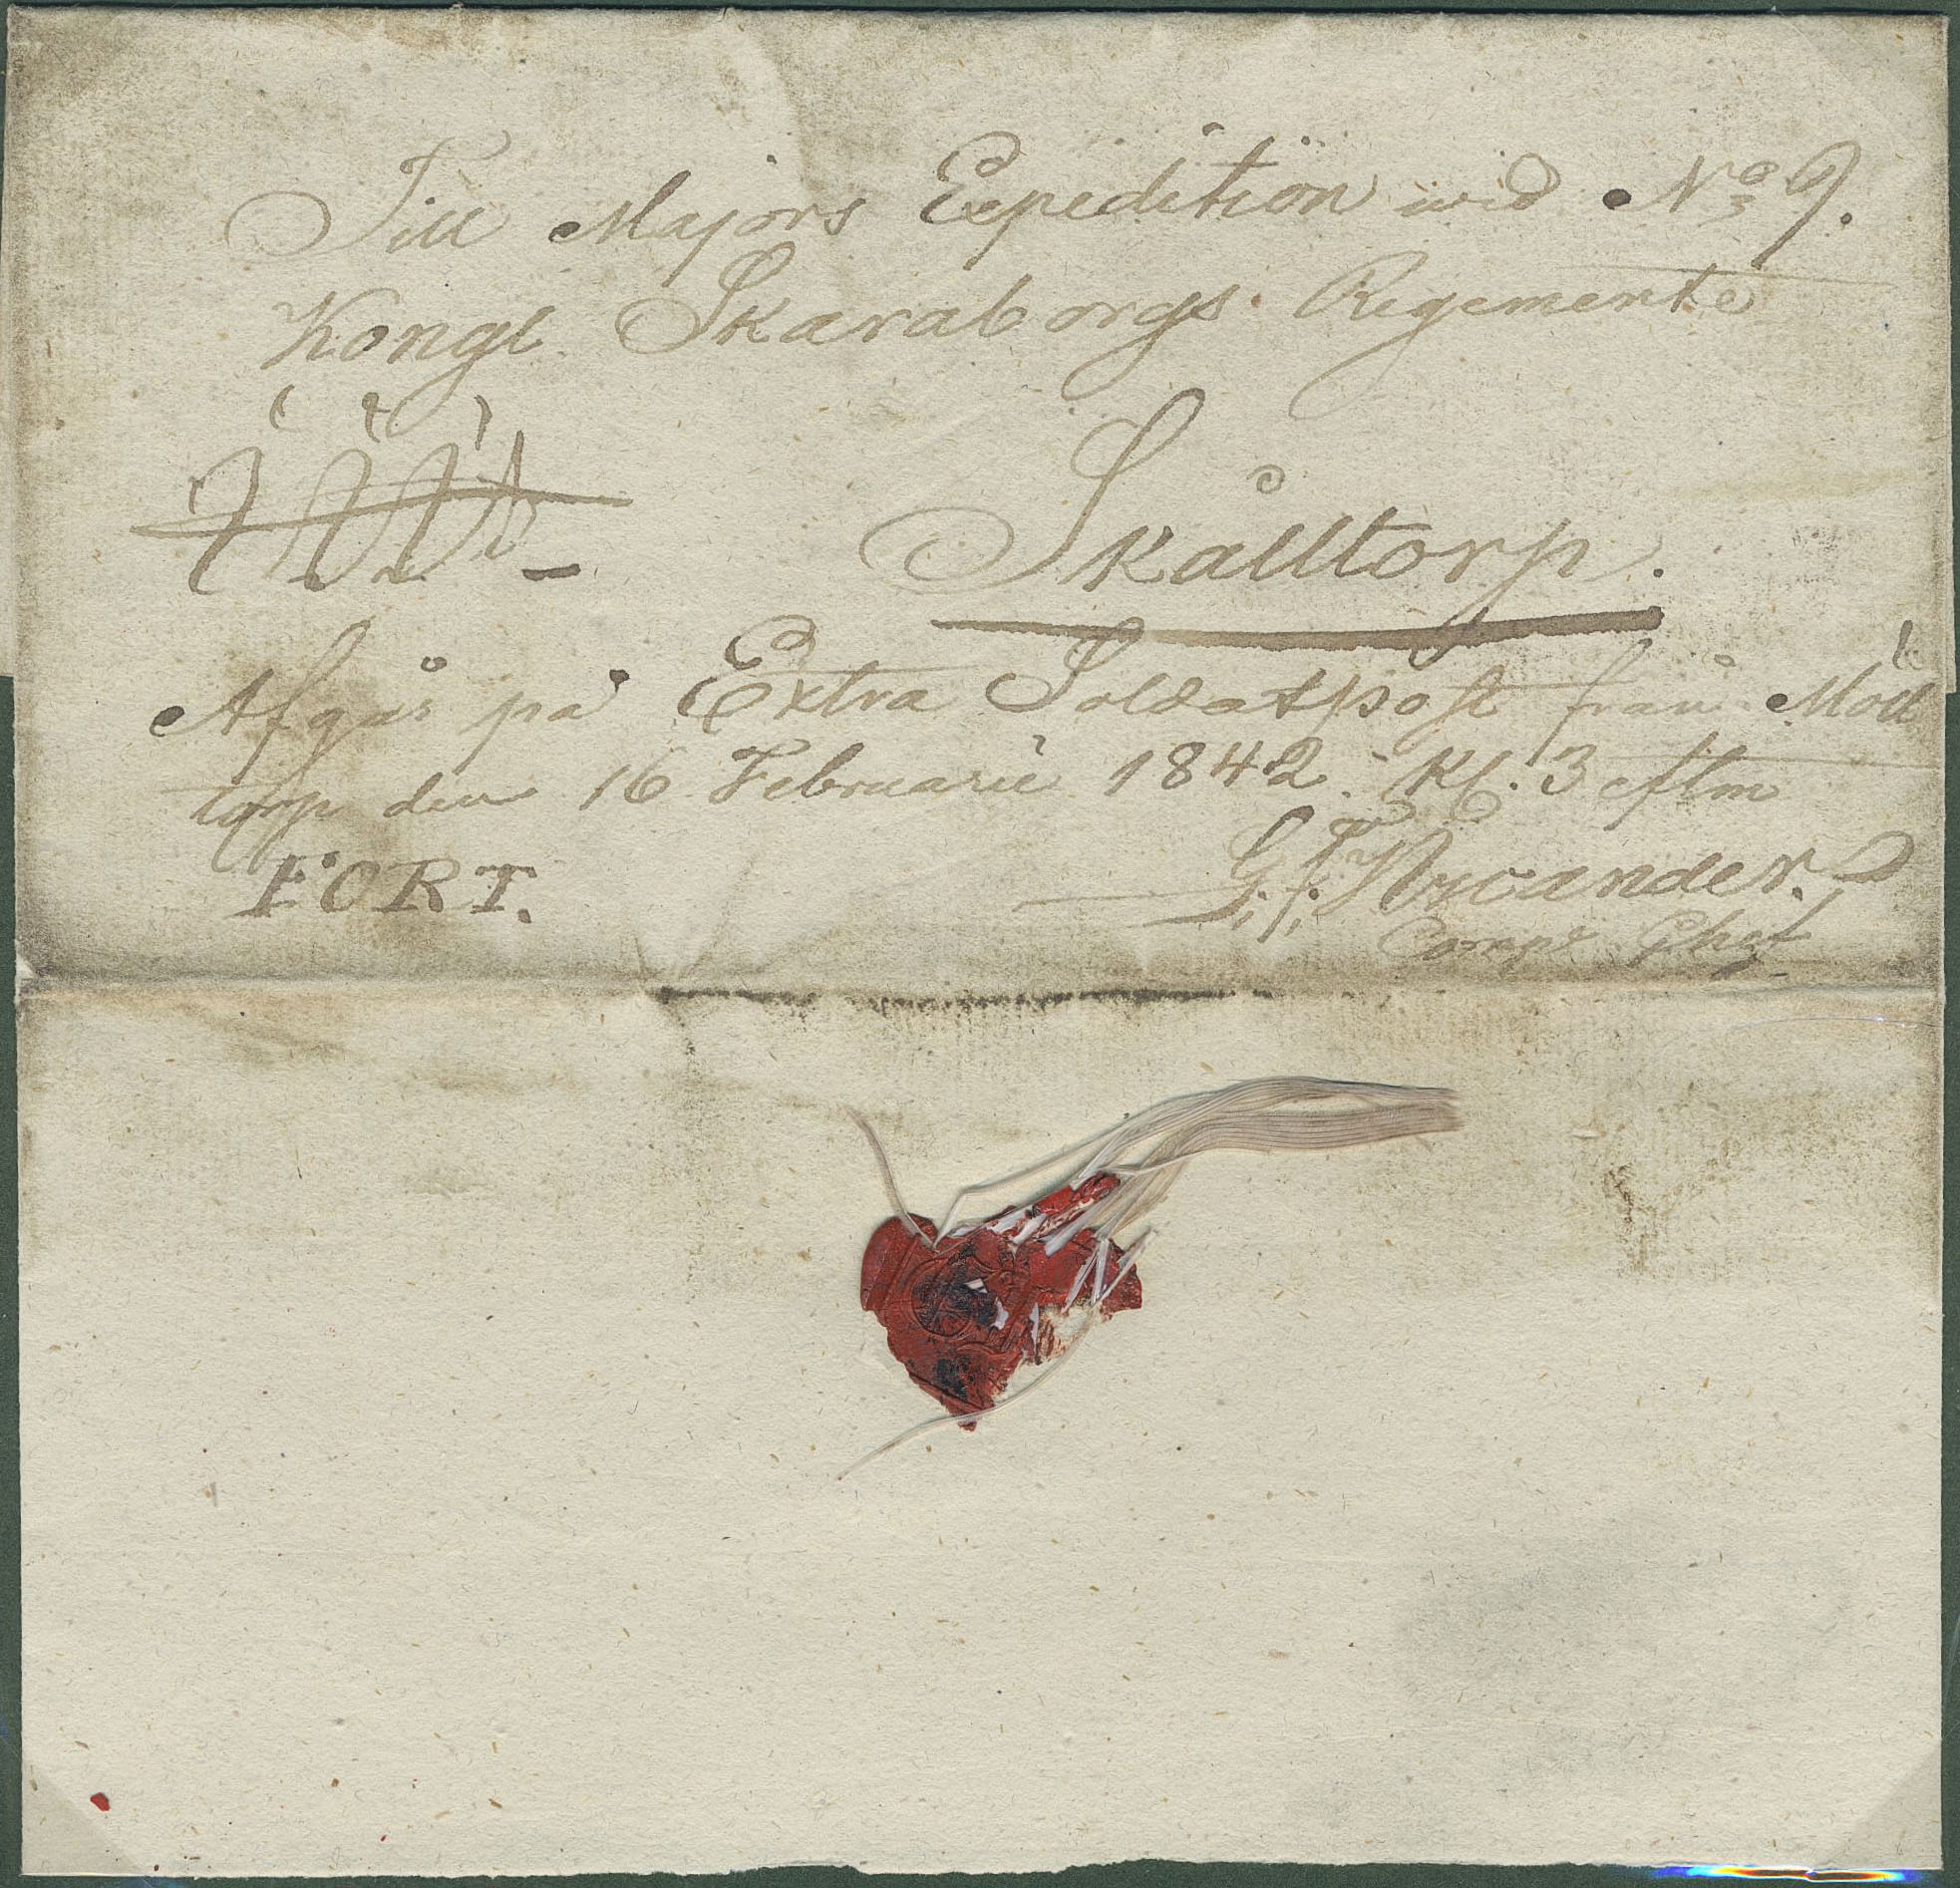 Till Majors Expedition wid No 9.
Kongl Skaraborgs Regemente
Skålltorp.
Afgår på Extra Soldatpost från Möll
torp den 16 Februarii 1842. Kl. 3 eftm
FORT.
Nycander.
Comps